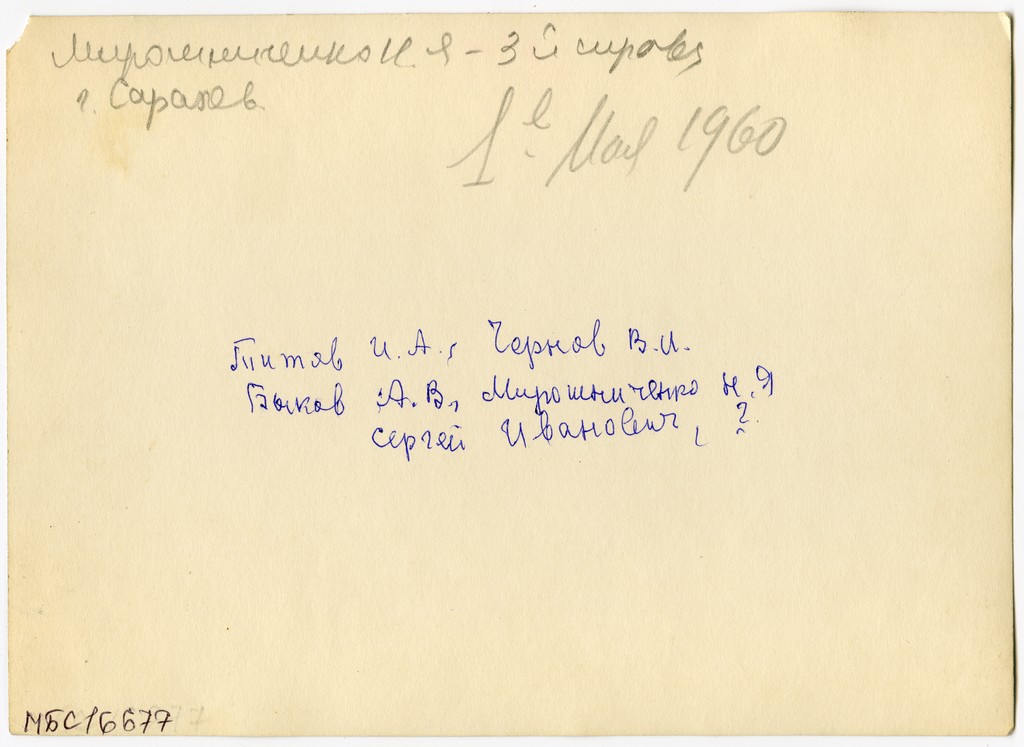 Мирошниченко Н. Я - 3 й справа
г. Саратов
1е Мая 1960
Титов И. А., Чернов В. И.
Быков А. В., Мирошниченко Н. Я
Сергей Иванович, ?
МБС16677